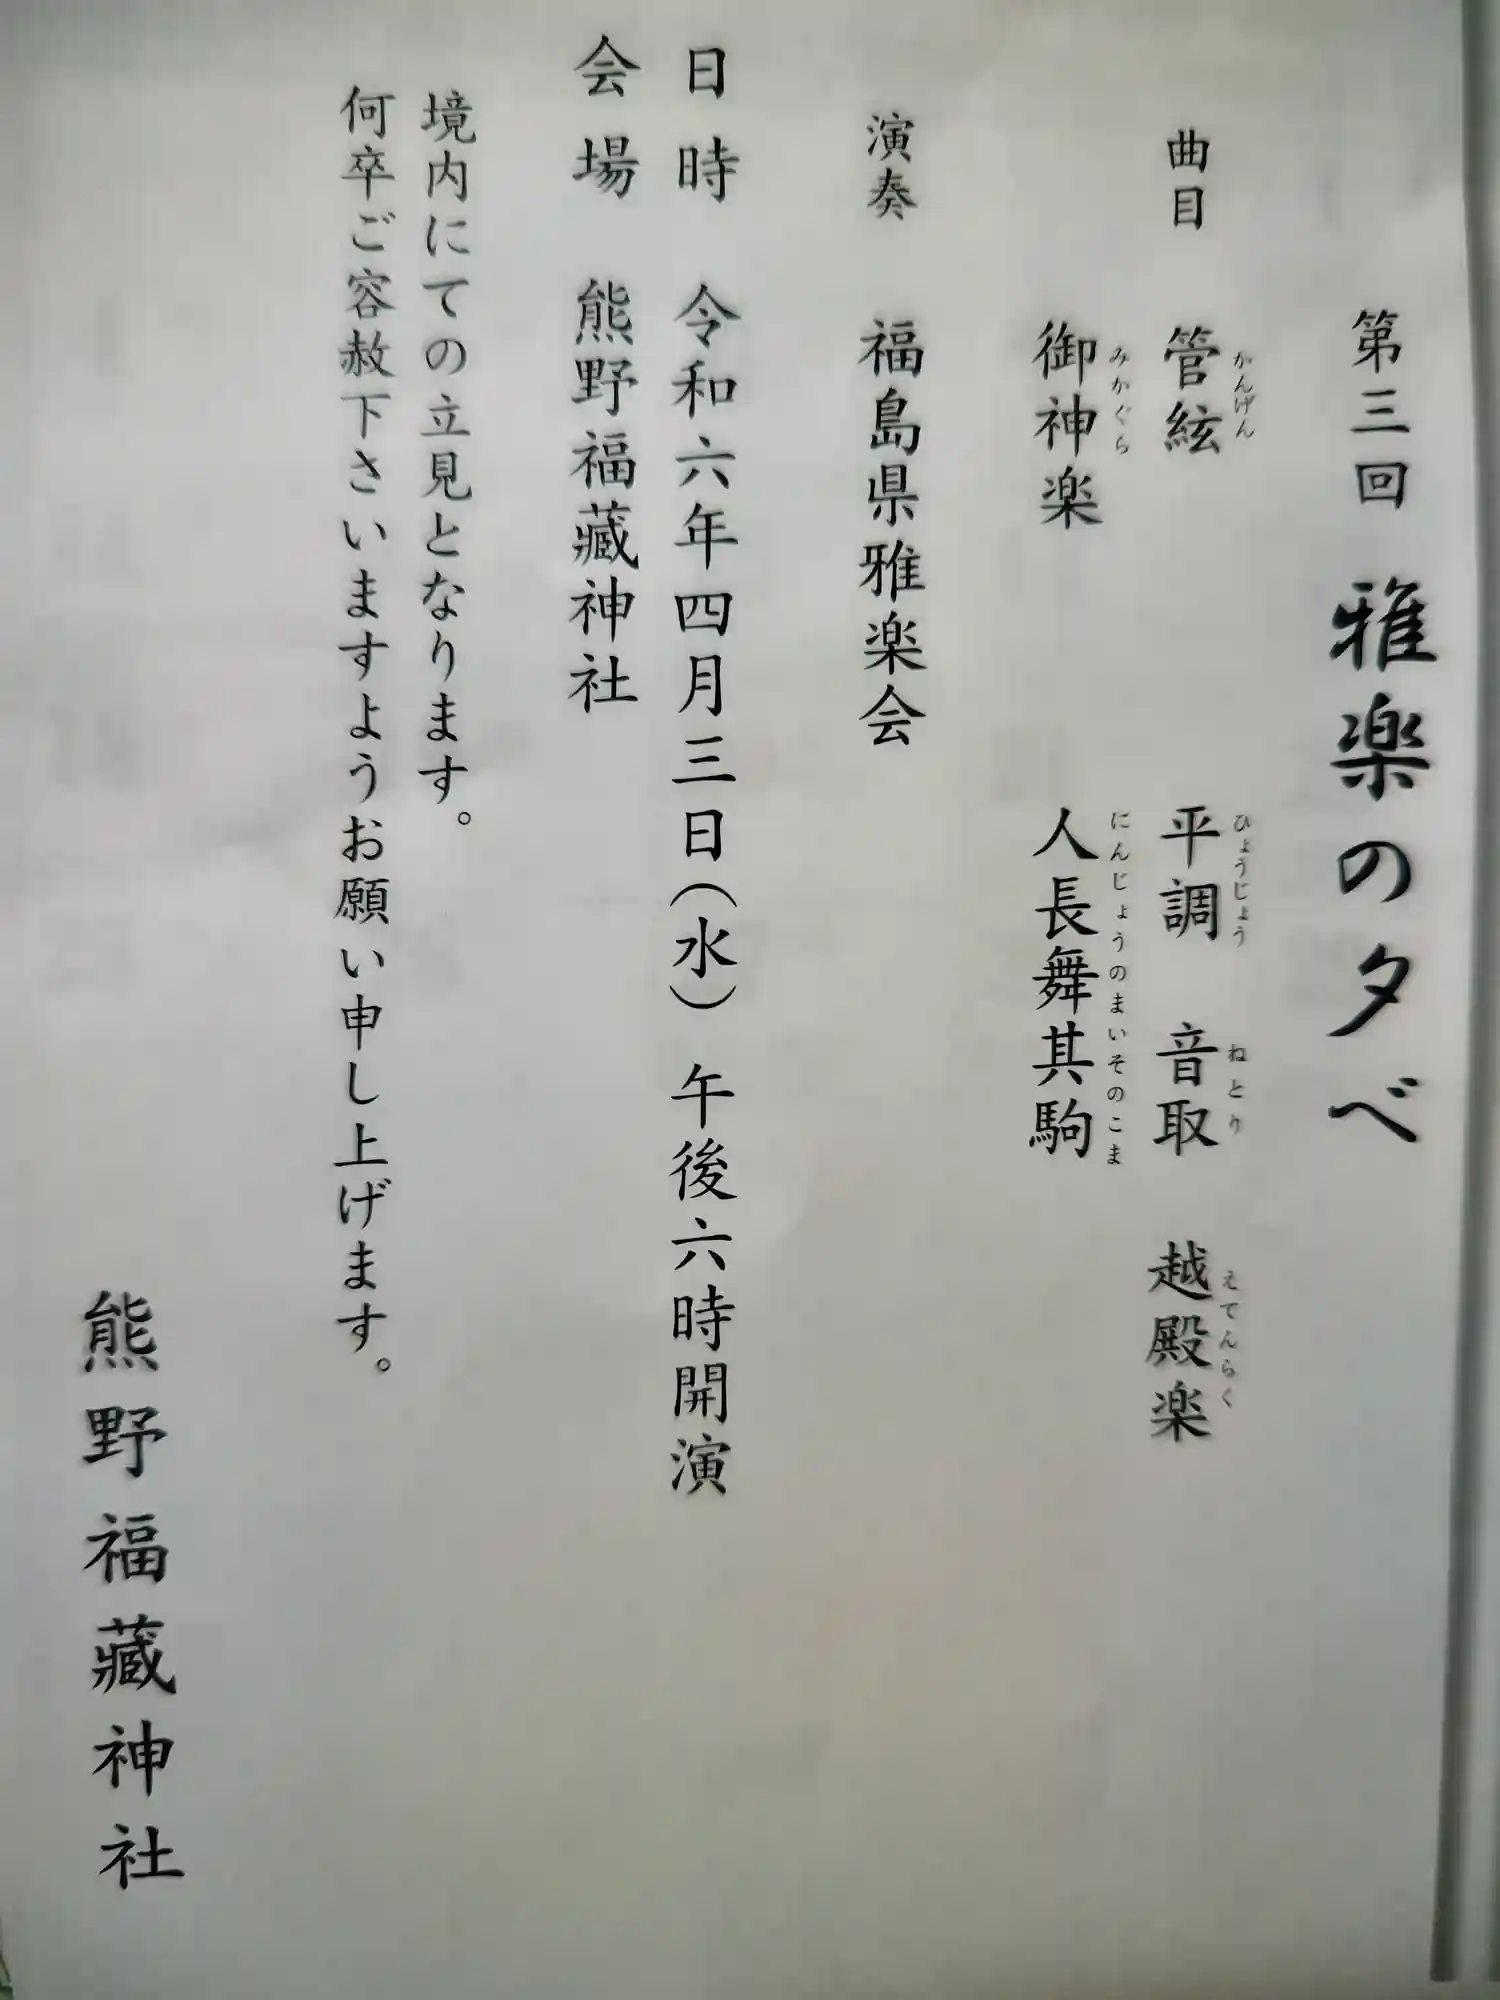 第三回 雅楽の夕べ
曲目 管絃 平調 音取 越殿楽
かんげん ひょうじょう ねとり えてんらく
御神楽 人長舞其駒
みかぐら にんじょうのまいそのこま
演奏 福島県雅楽会
日時 令和六年四月三日(水) 午後六時開演
会場 熊野福藏神社
境内にての立見となります。
何卒ご容赦下さいますようお願い申し上げます。
熊野福藏神社